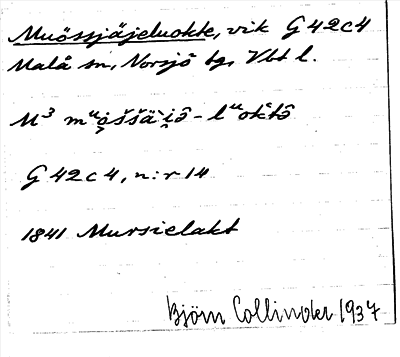 Muössjäjeluokte, vik G42c4
Malå sn, Norsjö tg, Vbt l.
M³ mᵘo̭ššä̀i̯ô - lᵘoktô
G42c4, n:r 14
1841 Mursielakt
Björn Collinder 1937